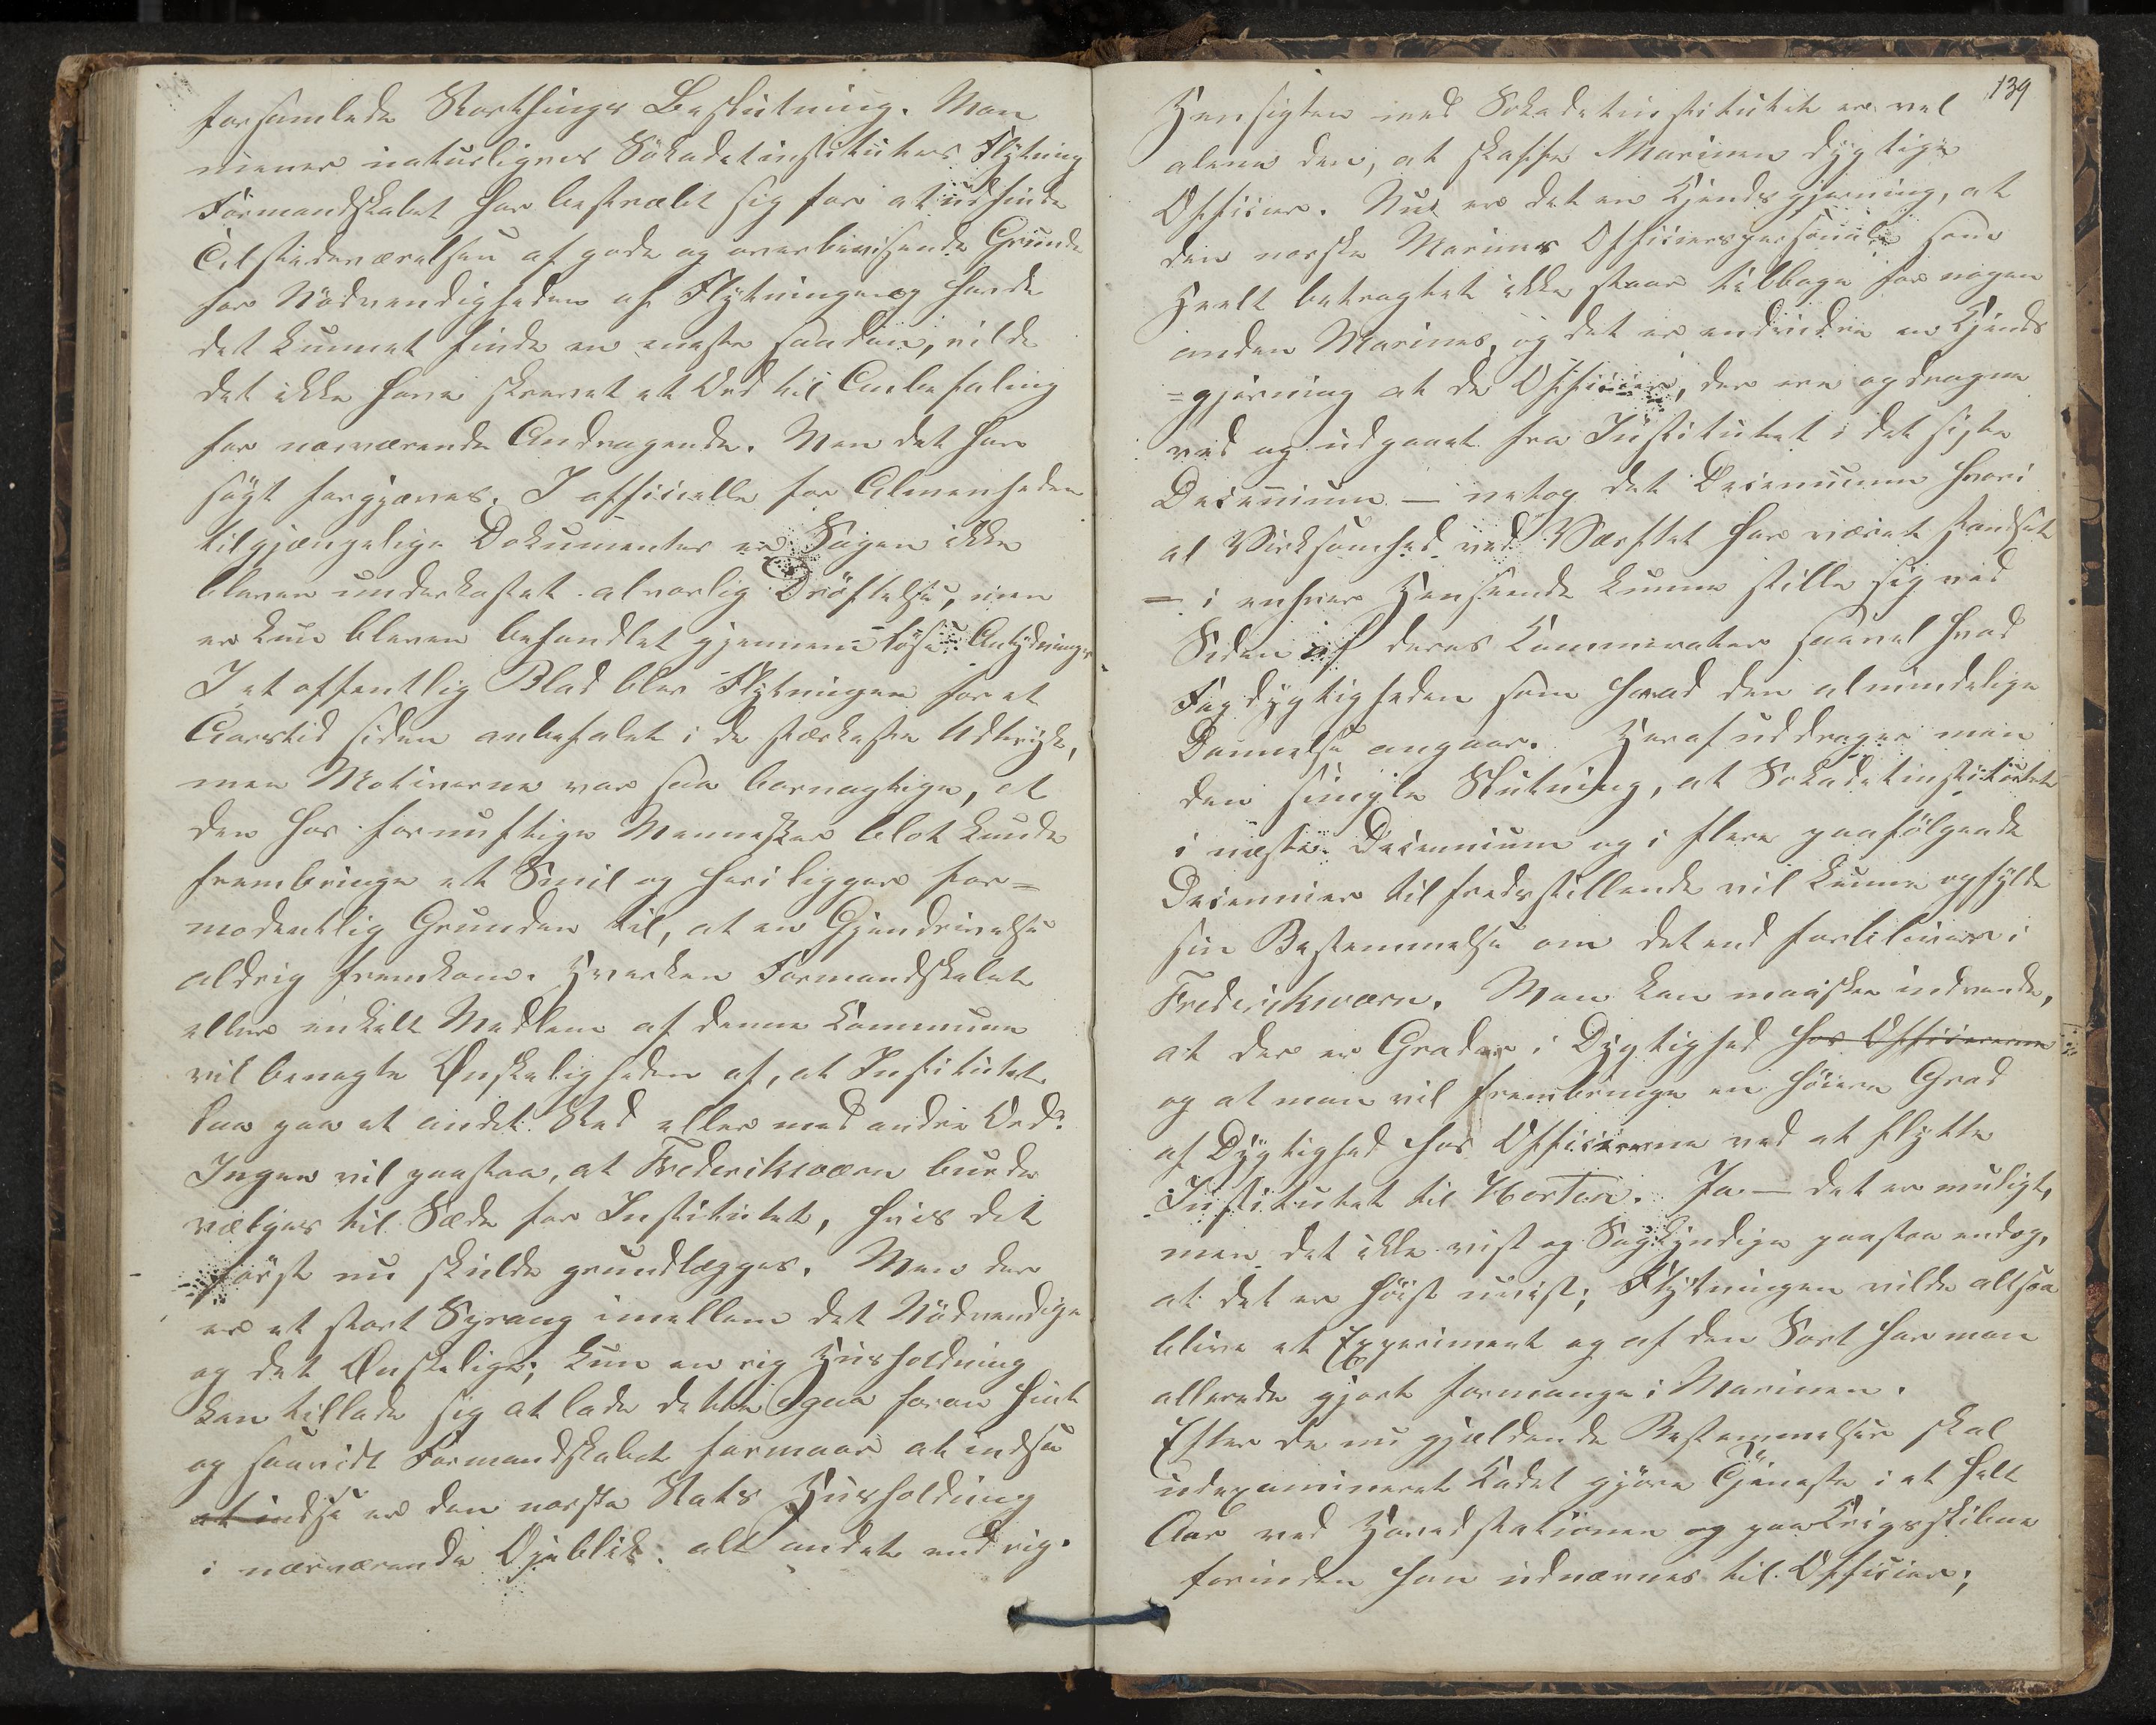 forsamlede Storthings Beslutning. Man
mener naturligvis Sökadetinstitutets Flytning
Formandskabet har bestræbt sig for at udfinde
Tilstedeværelsen af gode og overbevisende Grunde
for Nødvendigheden af Flytningen og havde
det kunnet finde en eneste saadan, vilde
det ikke have skrevet et Ord til Anbefaling
for nærværende Andragende. Men det har
søgt forgjæves. I officielle for Almenheden
tilgjængelige Dokumenter er Sagen ikke
bleven underkastet alvorlig Drøftelse, men
er kun bleven behandlet gjennem løse Antydninger
I et offentlig Blad blev Flytningen for et
Aarstid siden anbefalet i de stærkeste Udtryk,
men Motiverne var saa barnagtige, at
den hos fornuftige Mennesker blot kunde
frembringe et Smil og heri ligger for=
modentlig Grunden til, at en Gjendrivelse
aldrig fremkom. Hverken Formandskabet
eller enkelt Medlem af denne Kommune
vil benegte Ønskeligheden af, at Institutet
laa paa et andet Sted eller med andre Ord:
Ingen vil paastaa, at Frederiksværn burde
vælges til Sæde for Institutet, hvis det
først nu skulde grundlægges. Men der
er et stort Sprang imellem det Nödvendige
og det Ønskelige; kun en rig Husholdning
kan tillade sig at lade dette gaa foran hint
og saavidt Formandskabet formaar at indse
at indse er den norske Stats Husholdning
i nærværende Øjeblik alt andet end rig.
139
Hensigten med Sökadetinstitutet er vel
alene den, at skaffe Marinen dygtige
Officier. Nu er det en Kjendsgjerning, at
den norske Marines Officierspersonale som
Heelt betragtet ikke staar tilbage for nogen
anden Marines, og det er endvidere en Kjends
=gjerning at de Officier, der ere opdragne
ved og udgaaet fra Institutet i det sidste
Decennium — netop det Decennium hvori
al Virksomhed ved Værftet har været standset
— i enhver Henseende kunne stille sig ved
Siden af deres Kammerater saavel hvad
Fagdygtigheden som hvad den almindelige
Dannelse angaar. Heraf uddrager man
den simple Slutning, at Sökadetinstitutet
i næste Decennium og i flere paafølgende
Decennier tilfredsstillende vil kunne opfylde
sin Bestemmelse om det end forbliver i
Frederiksværn. Man kan maaske indvende,
at der er Grader i Dygtighed hos Officiererne
og at man vil frembringe en høiere Grad
af Dygtighed hos Officierne ved at flytte
Institutet til Horten. Ja — det er muligt,
men det ikke vist og Sagkyndige paastaa endog,
at det er høist uvist; Flytningen vilde altsaa
blive et Experiment og af den Sort har man
allerede gjort formange i Marinen.
Efter de nu gjældende Bestemmelser skal
udexamineret Kadet gjøre Tjeneste i et helt
Aar ved Hovedstationen og paa Krigsskibene
forinden han udnævnes til Officier;